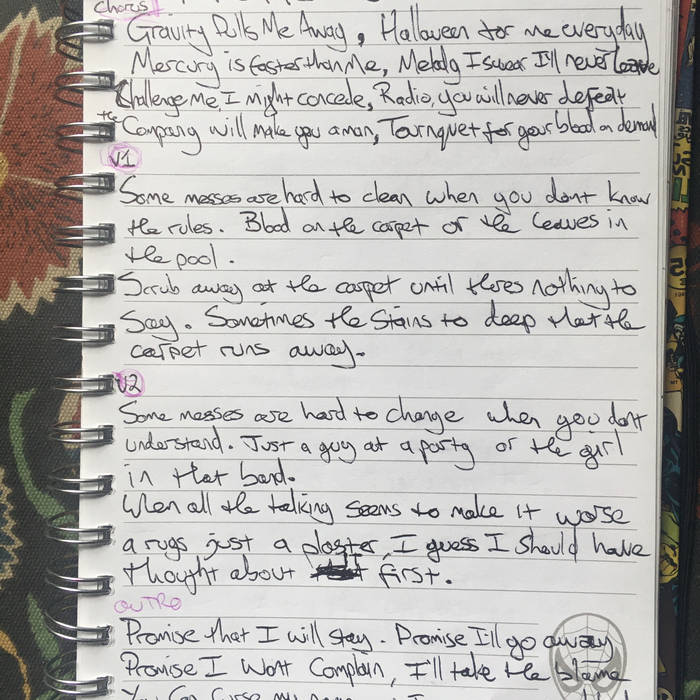 Chorus
Gravity Pulls Me Away, Halloween for me everyday
Mercury is faster than Me, Melody I swear I'll never leave
Challenge Me, I might concede, Radio, you will never defeat
the Company will make you a man, Tournquet for your blood on demand
V1
Some messes are hard to clean when you dont know
the rules. Blood on the carpet or the leaves in
the pool.
Scrub away at the carpet until theres nothing to
Say. Sometimes the Stains to deep that the
carpet runs away.
V2
Some messes are hard to change when you dont
understand. Just a guy at a party or the girl
in that band.
When all the talking seems to make it worse
a rugs just a plaster, I guess I should have
thought about first.
OUTRO
Promise that I will stay. Promise I'll go away
Promise I Wont Complain, I'll take the blame
You Can Curse my name